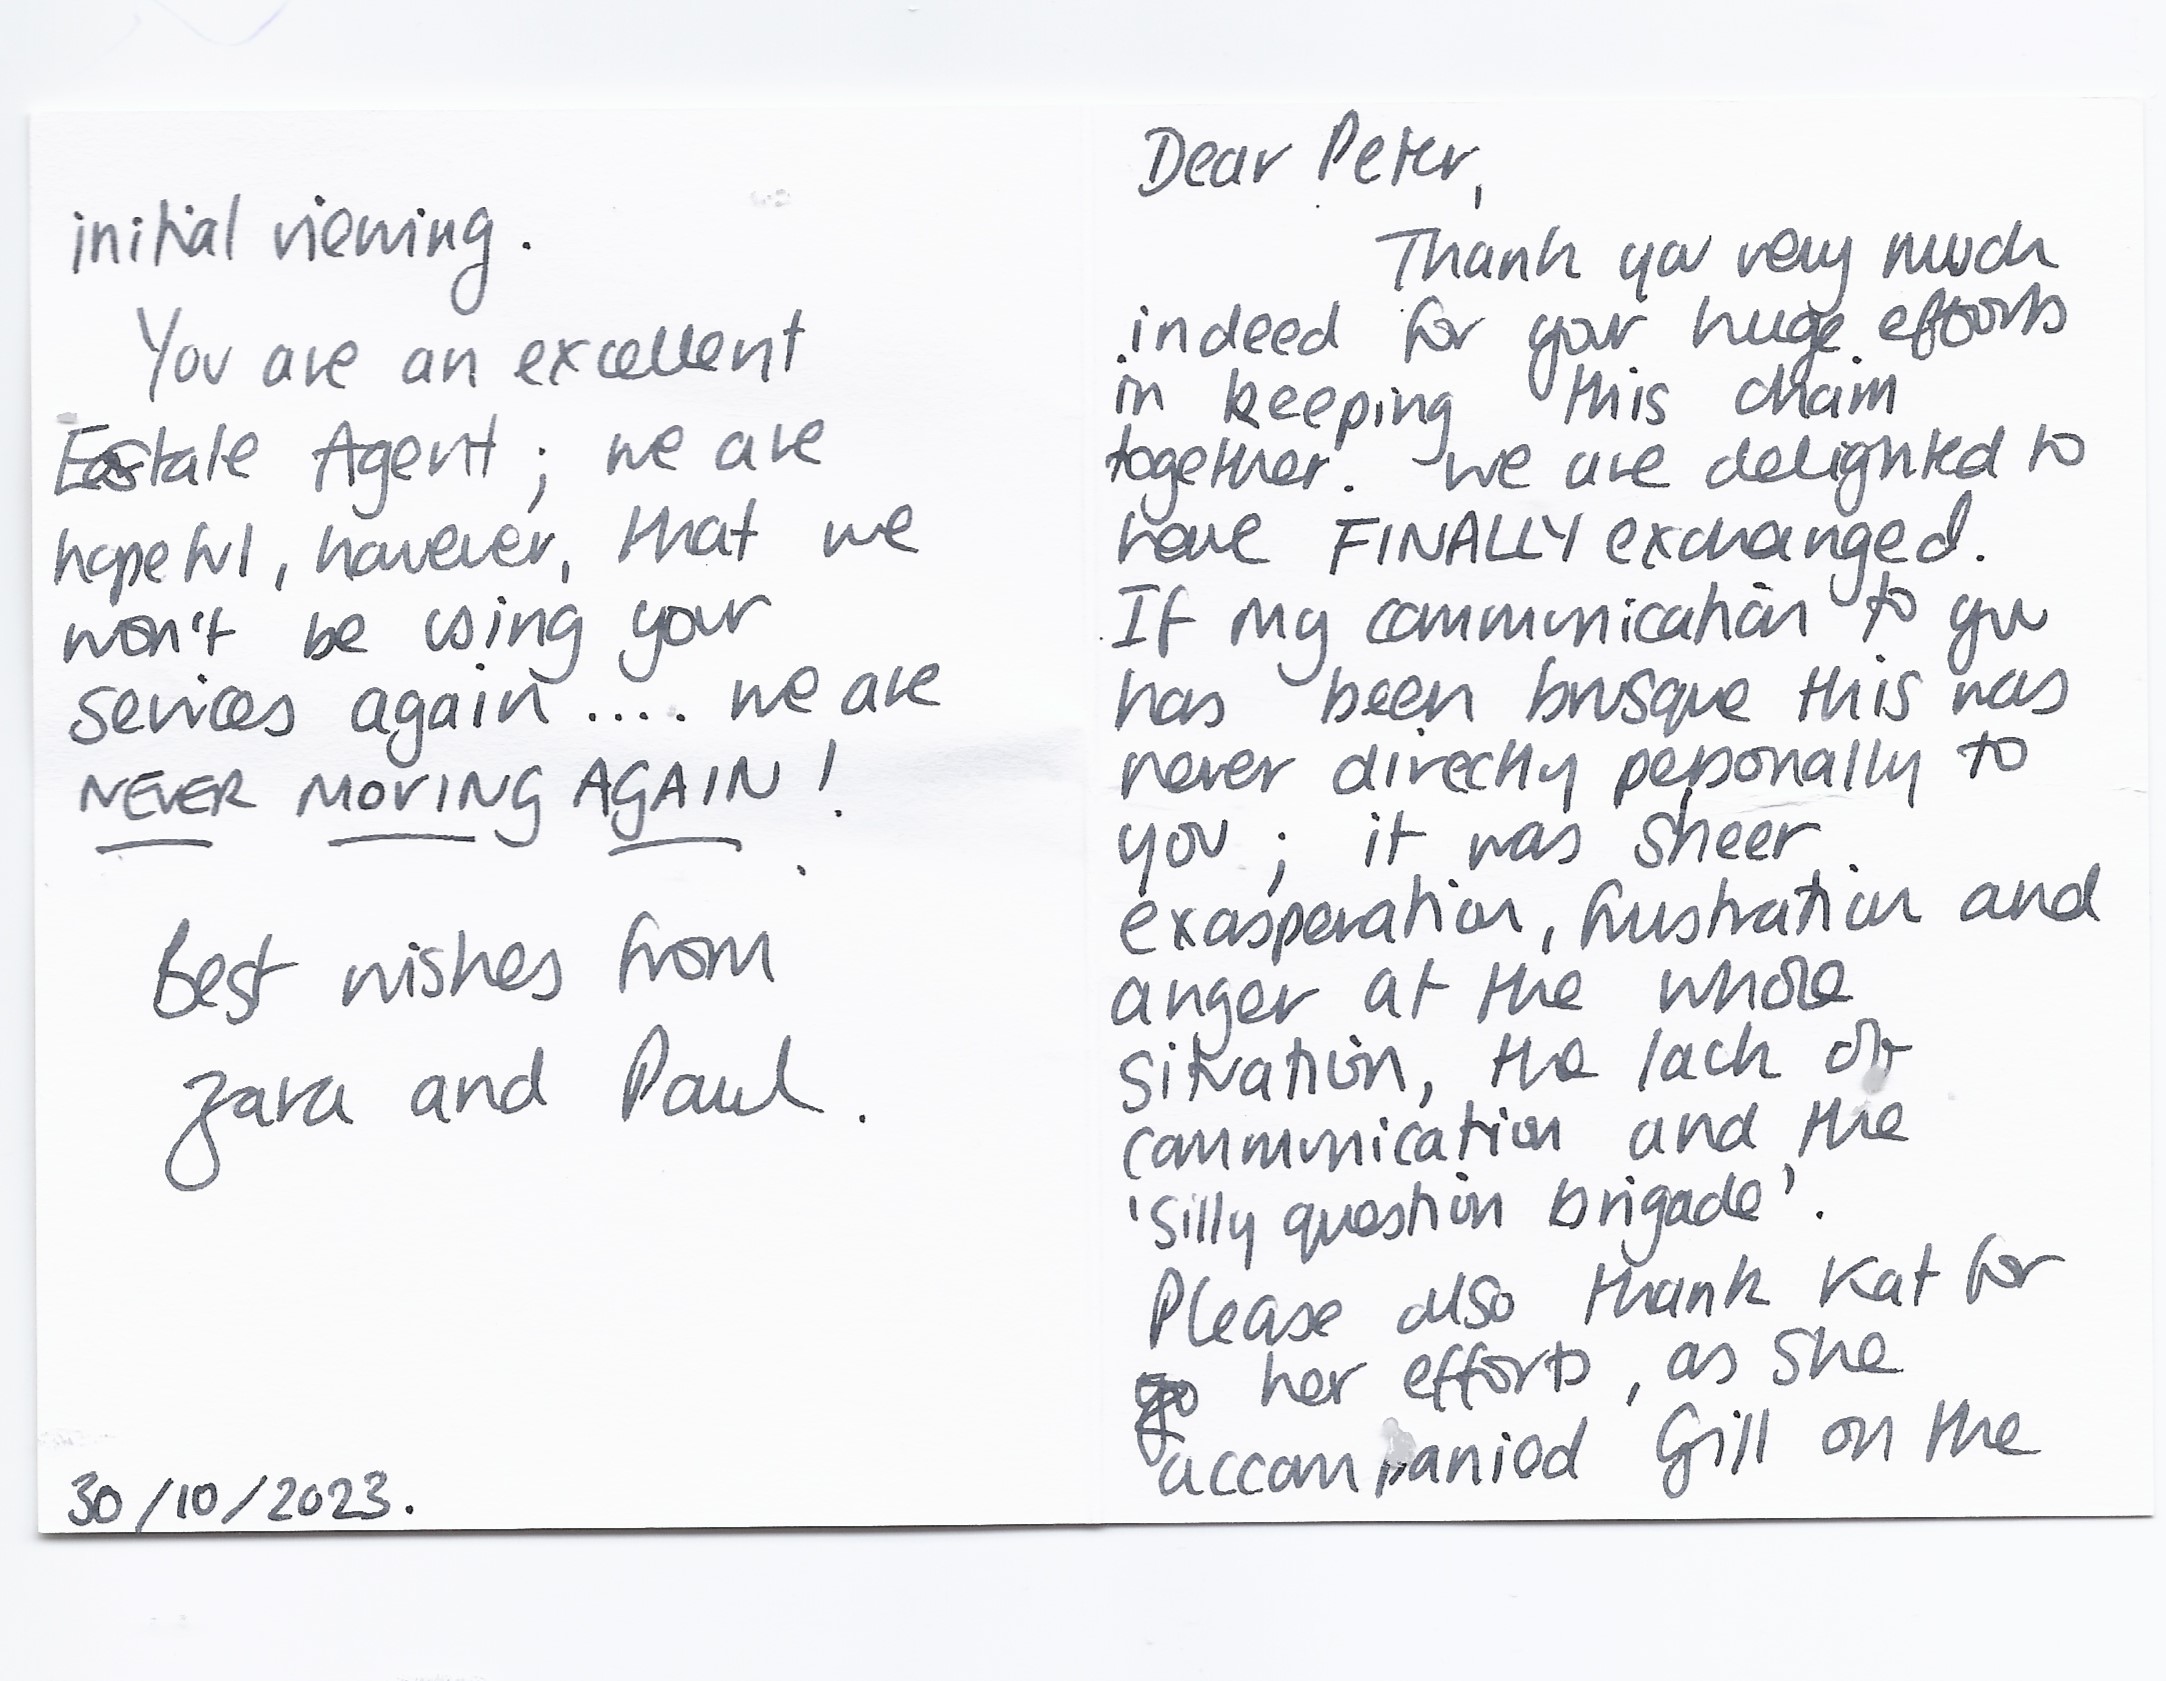 Dear Peter,
Thank you very much
indeed for your huge efforts
in keeping this chain
together. We are delighted to
have FINALLY exchanged.
If my communication to you
has been brusque this was
never directly personally to
you; it was sheer
exasperation, frustration and
anger at the whole
situation, the lack of
communication and the
'silly question brigade'.
Please also thank Kat for
her efforts, as she
accompanied Gill on the
initial viewing.
You are an excellent
Estate Agent; we are
hopeful, however, that we
won't be using your
sevices again.... we are
NEVER MOVING AGAIN!
Best wishes from
Zara and Paul.
30/10/2023.